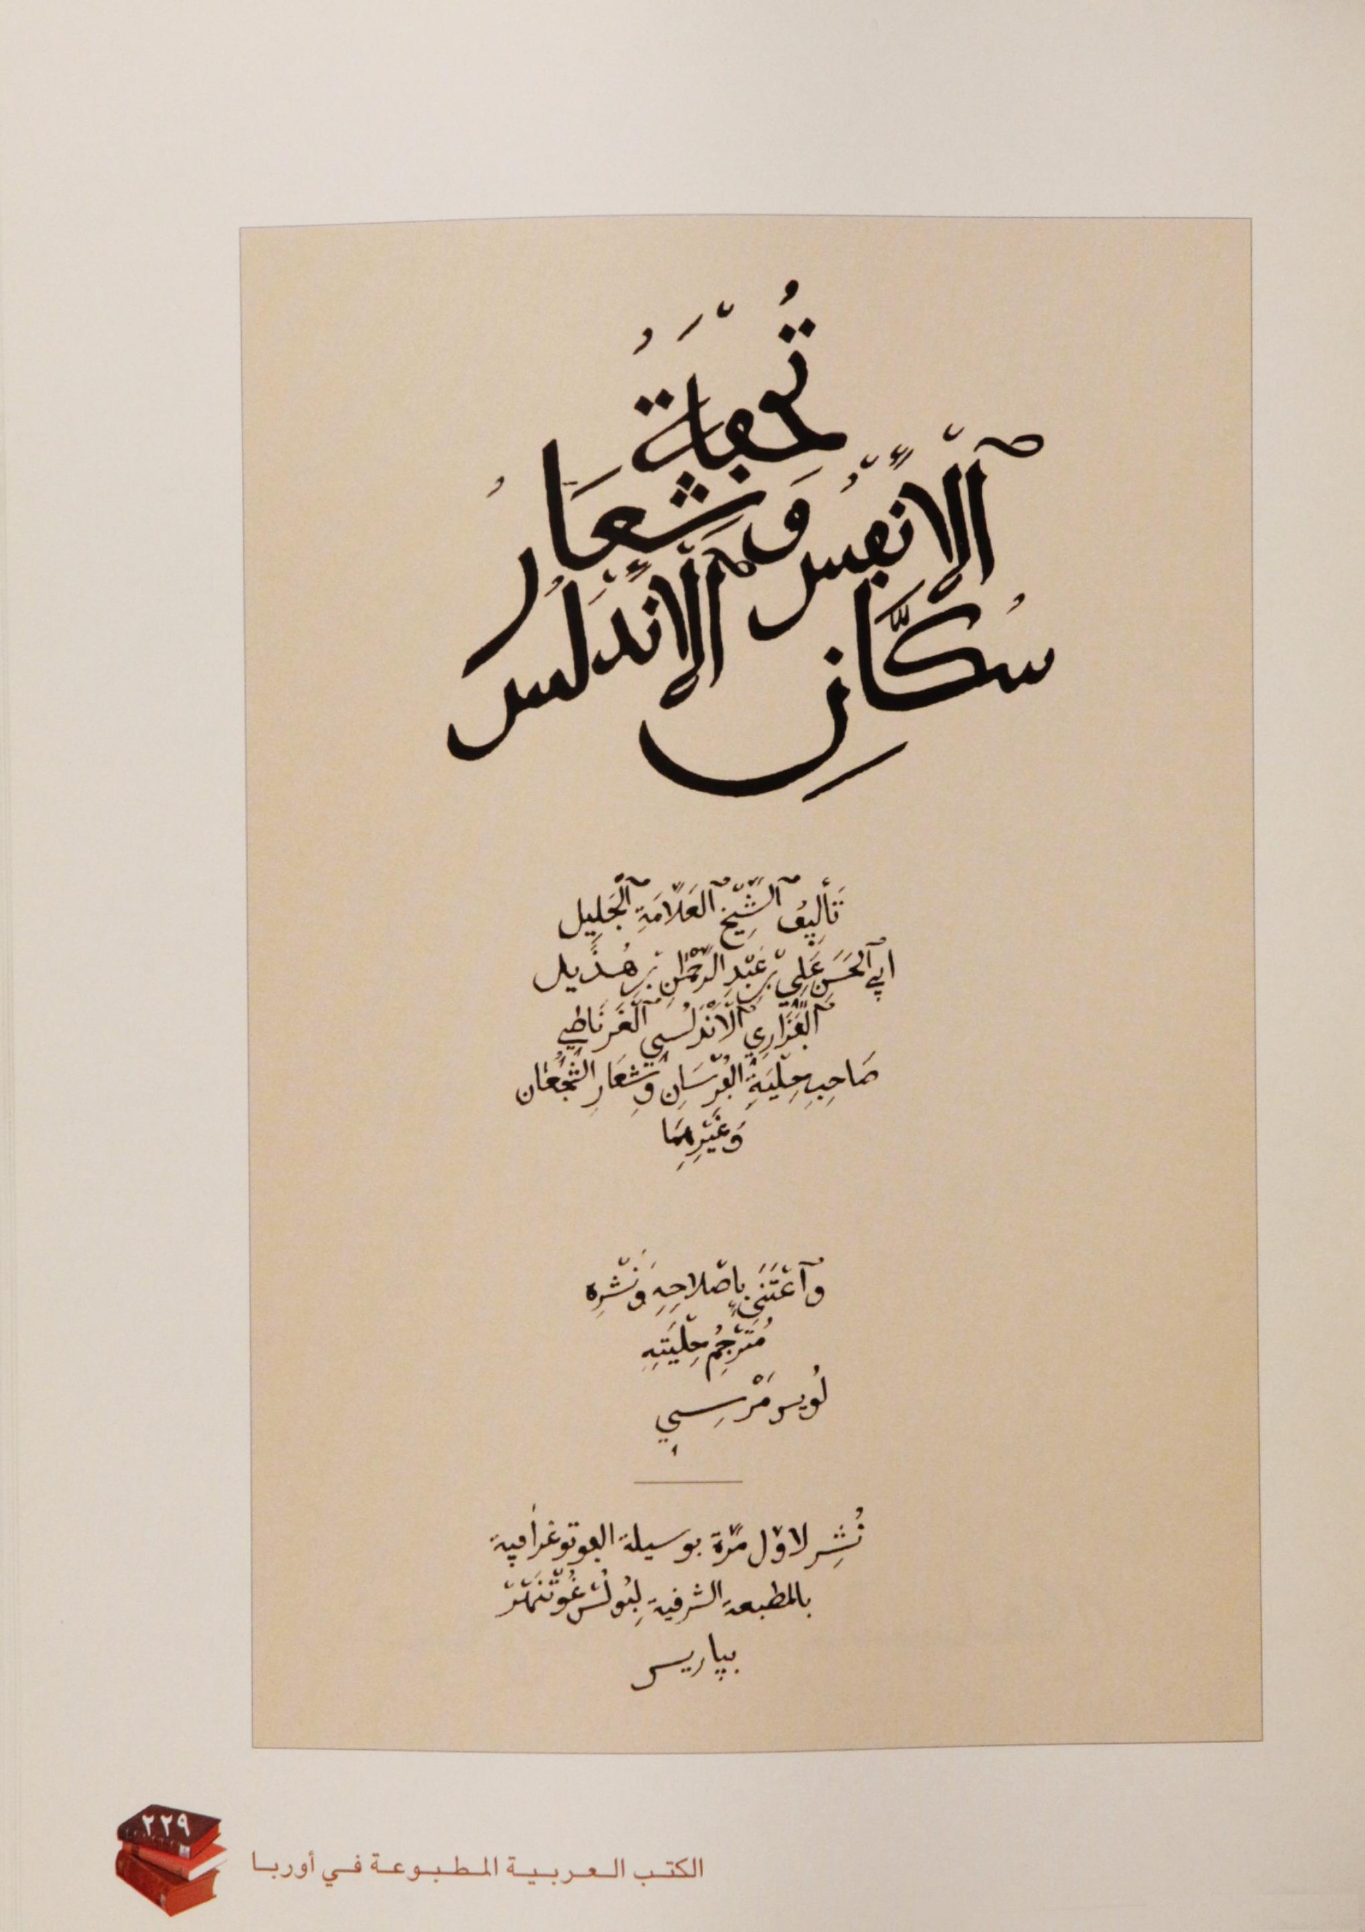 تُحْفَةُ
ٱلْأَنْفُسِ وَشِعَارُ
سُكَّانِ ٱلْأَنْدَلُسِ
تَأْلِيفُ ٱلشَّيْخِ ٱلْعَلَّامَةِ ٱلْجَلِيل
أبي ٱلْحَسَنِ عَلِيِّ بْنِ عَبْدِ الرَّحْمٰنِ بْنِ هُذَيْل
ٱلْفَزَارِيِ ٱلْأَنْدَلُسِي ٱلْغَرْنَاطِي
صَاحِبِ حِلْيَةِ الفُرْسَانِ وَشِعَارِ الشُّجْعَان
وَغَيْرِهِمَا
وَٱعْتَنَى بِإِصْلَاحِهِ وَنَشْرِه
مُتَرْجِمُ حِلْيَتِهِ
لُويس مَرْسِيي
نُشِر لأوّل مَرّة بوسيلة الفوتوغرافية
بالمطبعة الشرفية لِبُولُسْ غُوتْنَيْر
بپاريس
٢٢٩
الكتب العربية المطبوعة في أوربا